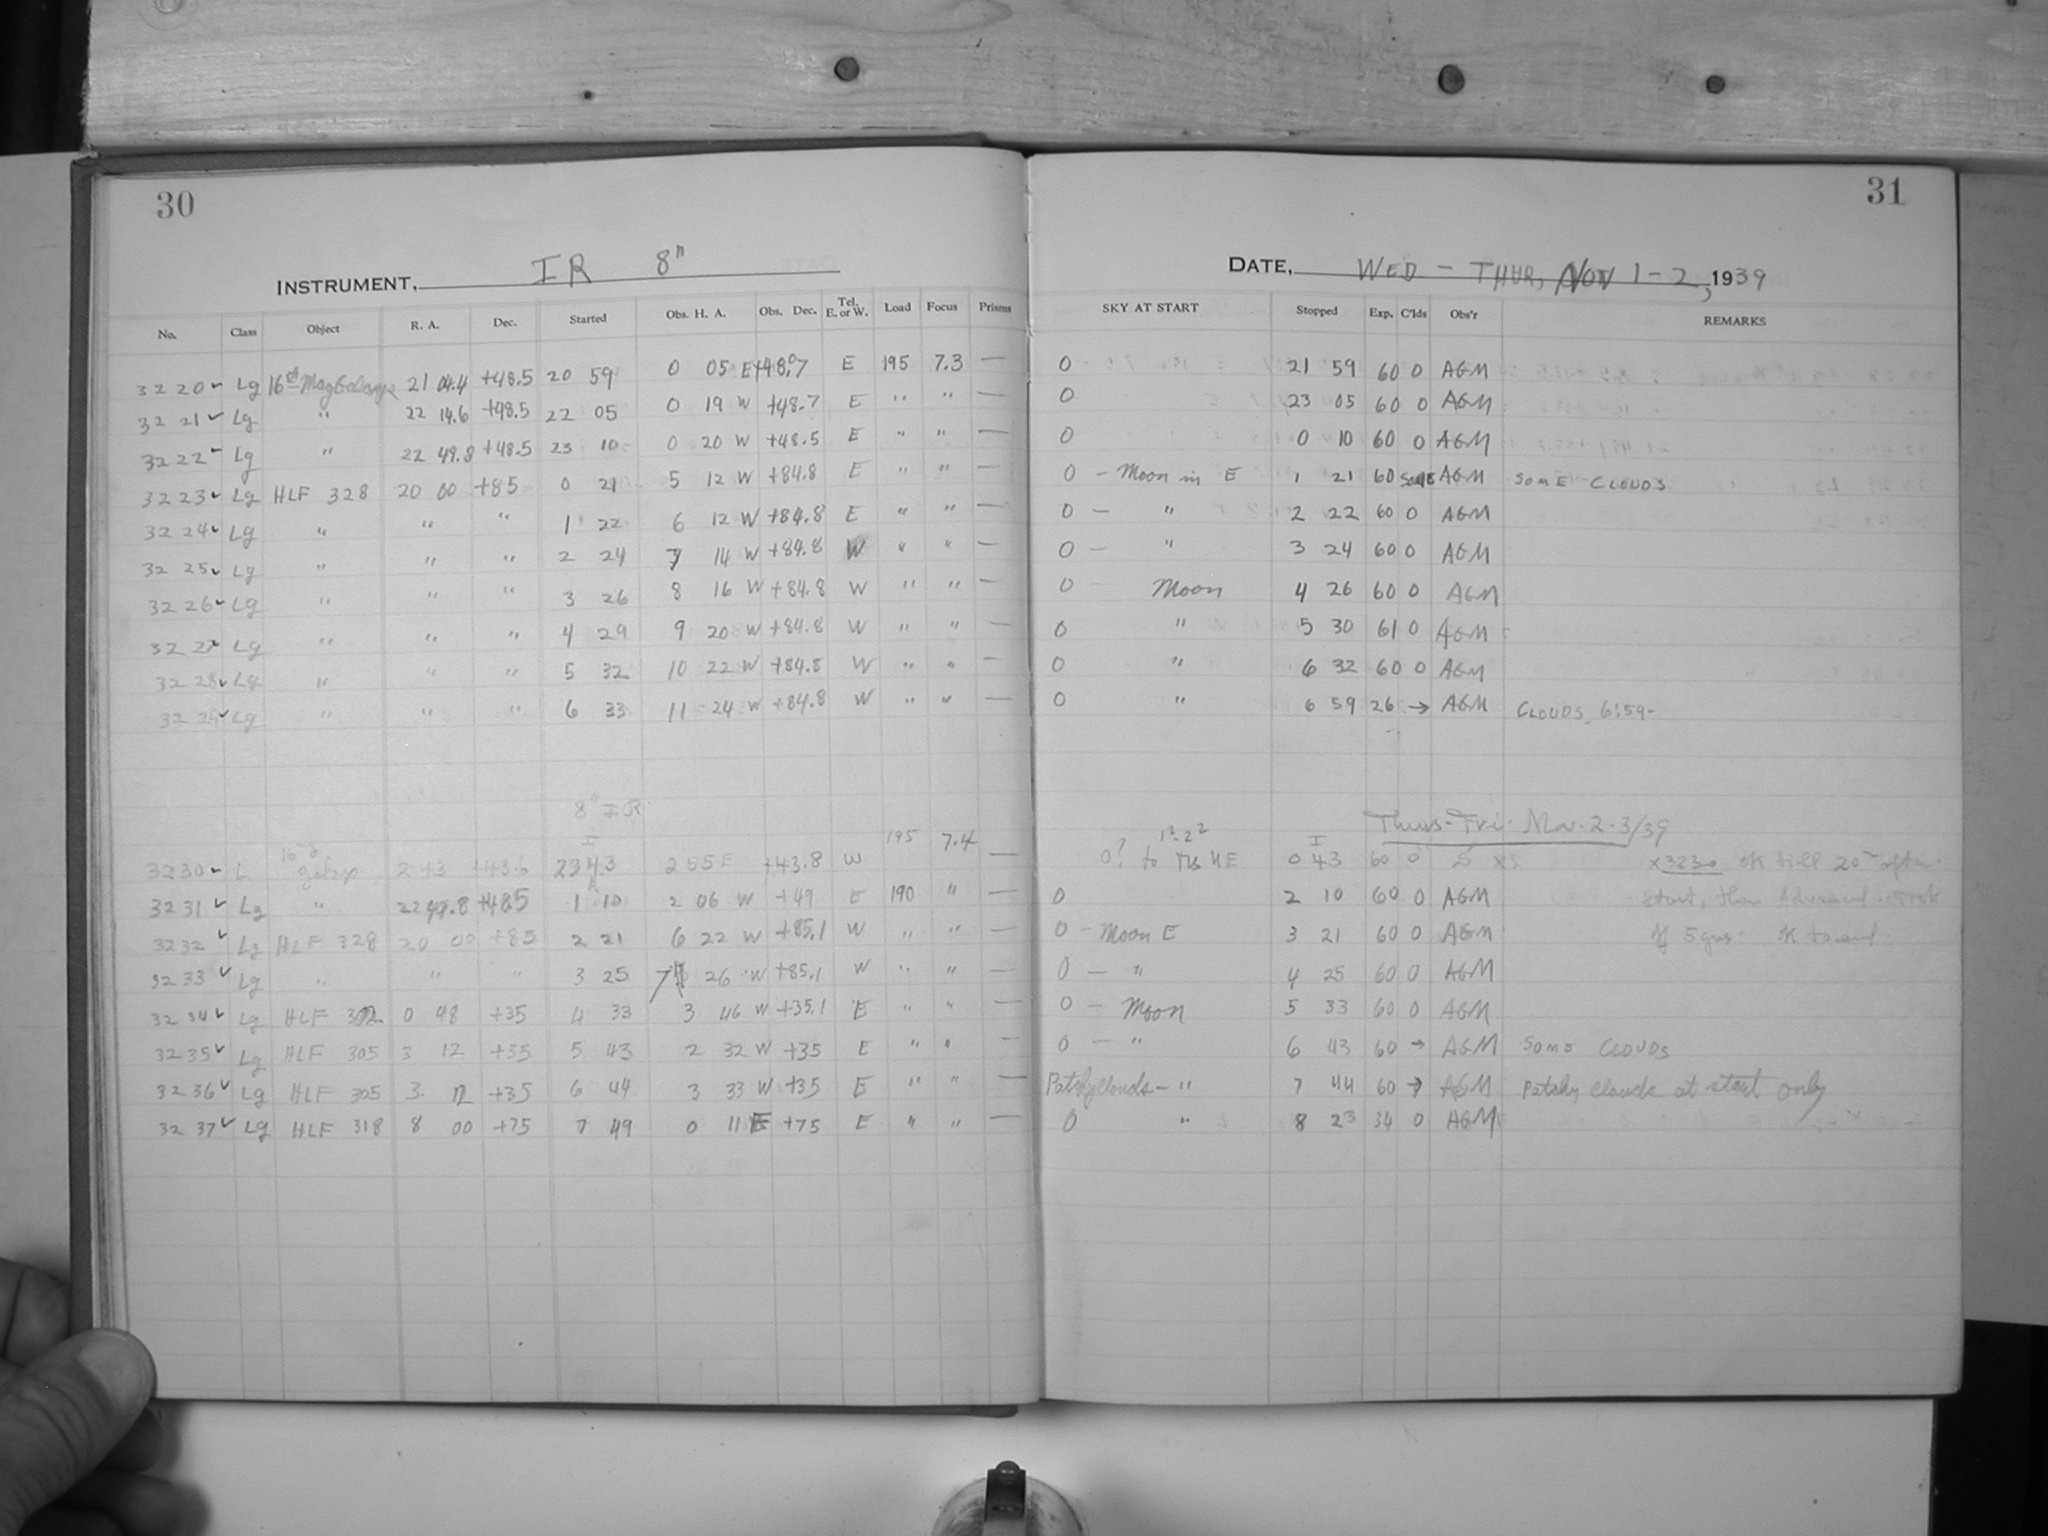 30
31
INSTRUMENT, IR 8"
DATE, WED - THUR, NOV 1-2, 1939
No. Class Object R. A. Dec. Started Obs. H. A. Obs. Dec. Tel. E. or W. Load Focus Prisms SKY AT START Stopped Exp. C'lds Obs'r REMARKS
3220 ✓ Lg 16th Mag Galaxy 21 04.4 +48.5 20 59 0 05 E +48.7 E 195 7.3 — 0 21 59 60 0 AGM
3221 ✓ Lg " 22 14.6 +48.5 22 05 0 19 W +48.7 E " " — 0 23 05 60 0 AGM
3222 ✓ Lg " 22 49.8 +48.5 23 10 0 20 W +48.5 E " " — 0 0 10 60 0 AGM
3223 ✓ Lg HLF 328 20 00 +85 0 21 5 12 W +84.8 E " " — 0 - Moon in E 1 21 60 some AGM SOME CLOUDS
3224 ✓ Lg " " " 1 22 6 12 W +84.8 E " " — 0 - " 2 22 60 0 AGM
3225 ✓ Lg " " " 2 24 7 14 W +84.8 W " " — 0 - " 3 24 60 0 AGM
3226 ✓ Lg " " " 3 26 8 16 W +84.8 W " " — 0 - Moon 4 26 60 0 AGM
3227 ✓ Lg " " " 4 29 9 20 W +84.8 W " " — 0 " 5 30 61 0 AGM
3228 ✓ Lg " " " 5 32 10 22 W +84.8 W " " — 0 " 6 32 60 0 AGM
3229 ✓ Lg " " " 6 33 11 24 W +84.8 W " " — 0 " 6 59 26 → AGM CLOUDS, 6:59-
8" IR
Thurs-Fri. Nov. 2-3/39
3230 ✓ L 16 galaxy 2 43 +43.6 23 43 2 55 E +43.8 W 195 7.4 — 0? to NE 0 43 60 0 x3230 OK till 20 after
3231 ✓ Lg " 22 49.8 +48.5 1 10 2 06 W +49 E 190 " — 0 2 10 60 0 AGM start, then
3232 ✓ Lg HLF 328 20 00 +85 2 21 6 22 W +85.1 W " " — 0 - Moon E 3 21 60 0 AGM OK to end.
3233 ✓ Lg " " " 3 25 7 26 W +85.1 W " " — 0 - " 4 25 60 0 AGM
3234 ✓ Lg HLF 0 48 +35 4 33 3 46 W +35.1 E " " — 0 - Moon 5 33 60 0 AGM
3235 ✓ Lg HLF 305 3 12 +35 5 43 2 32 W +35 E " " — 0 - " 6 43 60 → AGM SOME CLOUDS
3236 ✓ Lg HLF 305 3 12 +35 6 44 3 33 W +35 E " " — Patchy clouds - " 7 44 60 → AGM Patchy clouds at start only
3237 ✓ Lg HLF 318 8 00 +75 7 49 0 11 E +75 E " " — 0 " 8 23 34 0 AGM